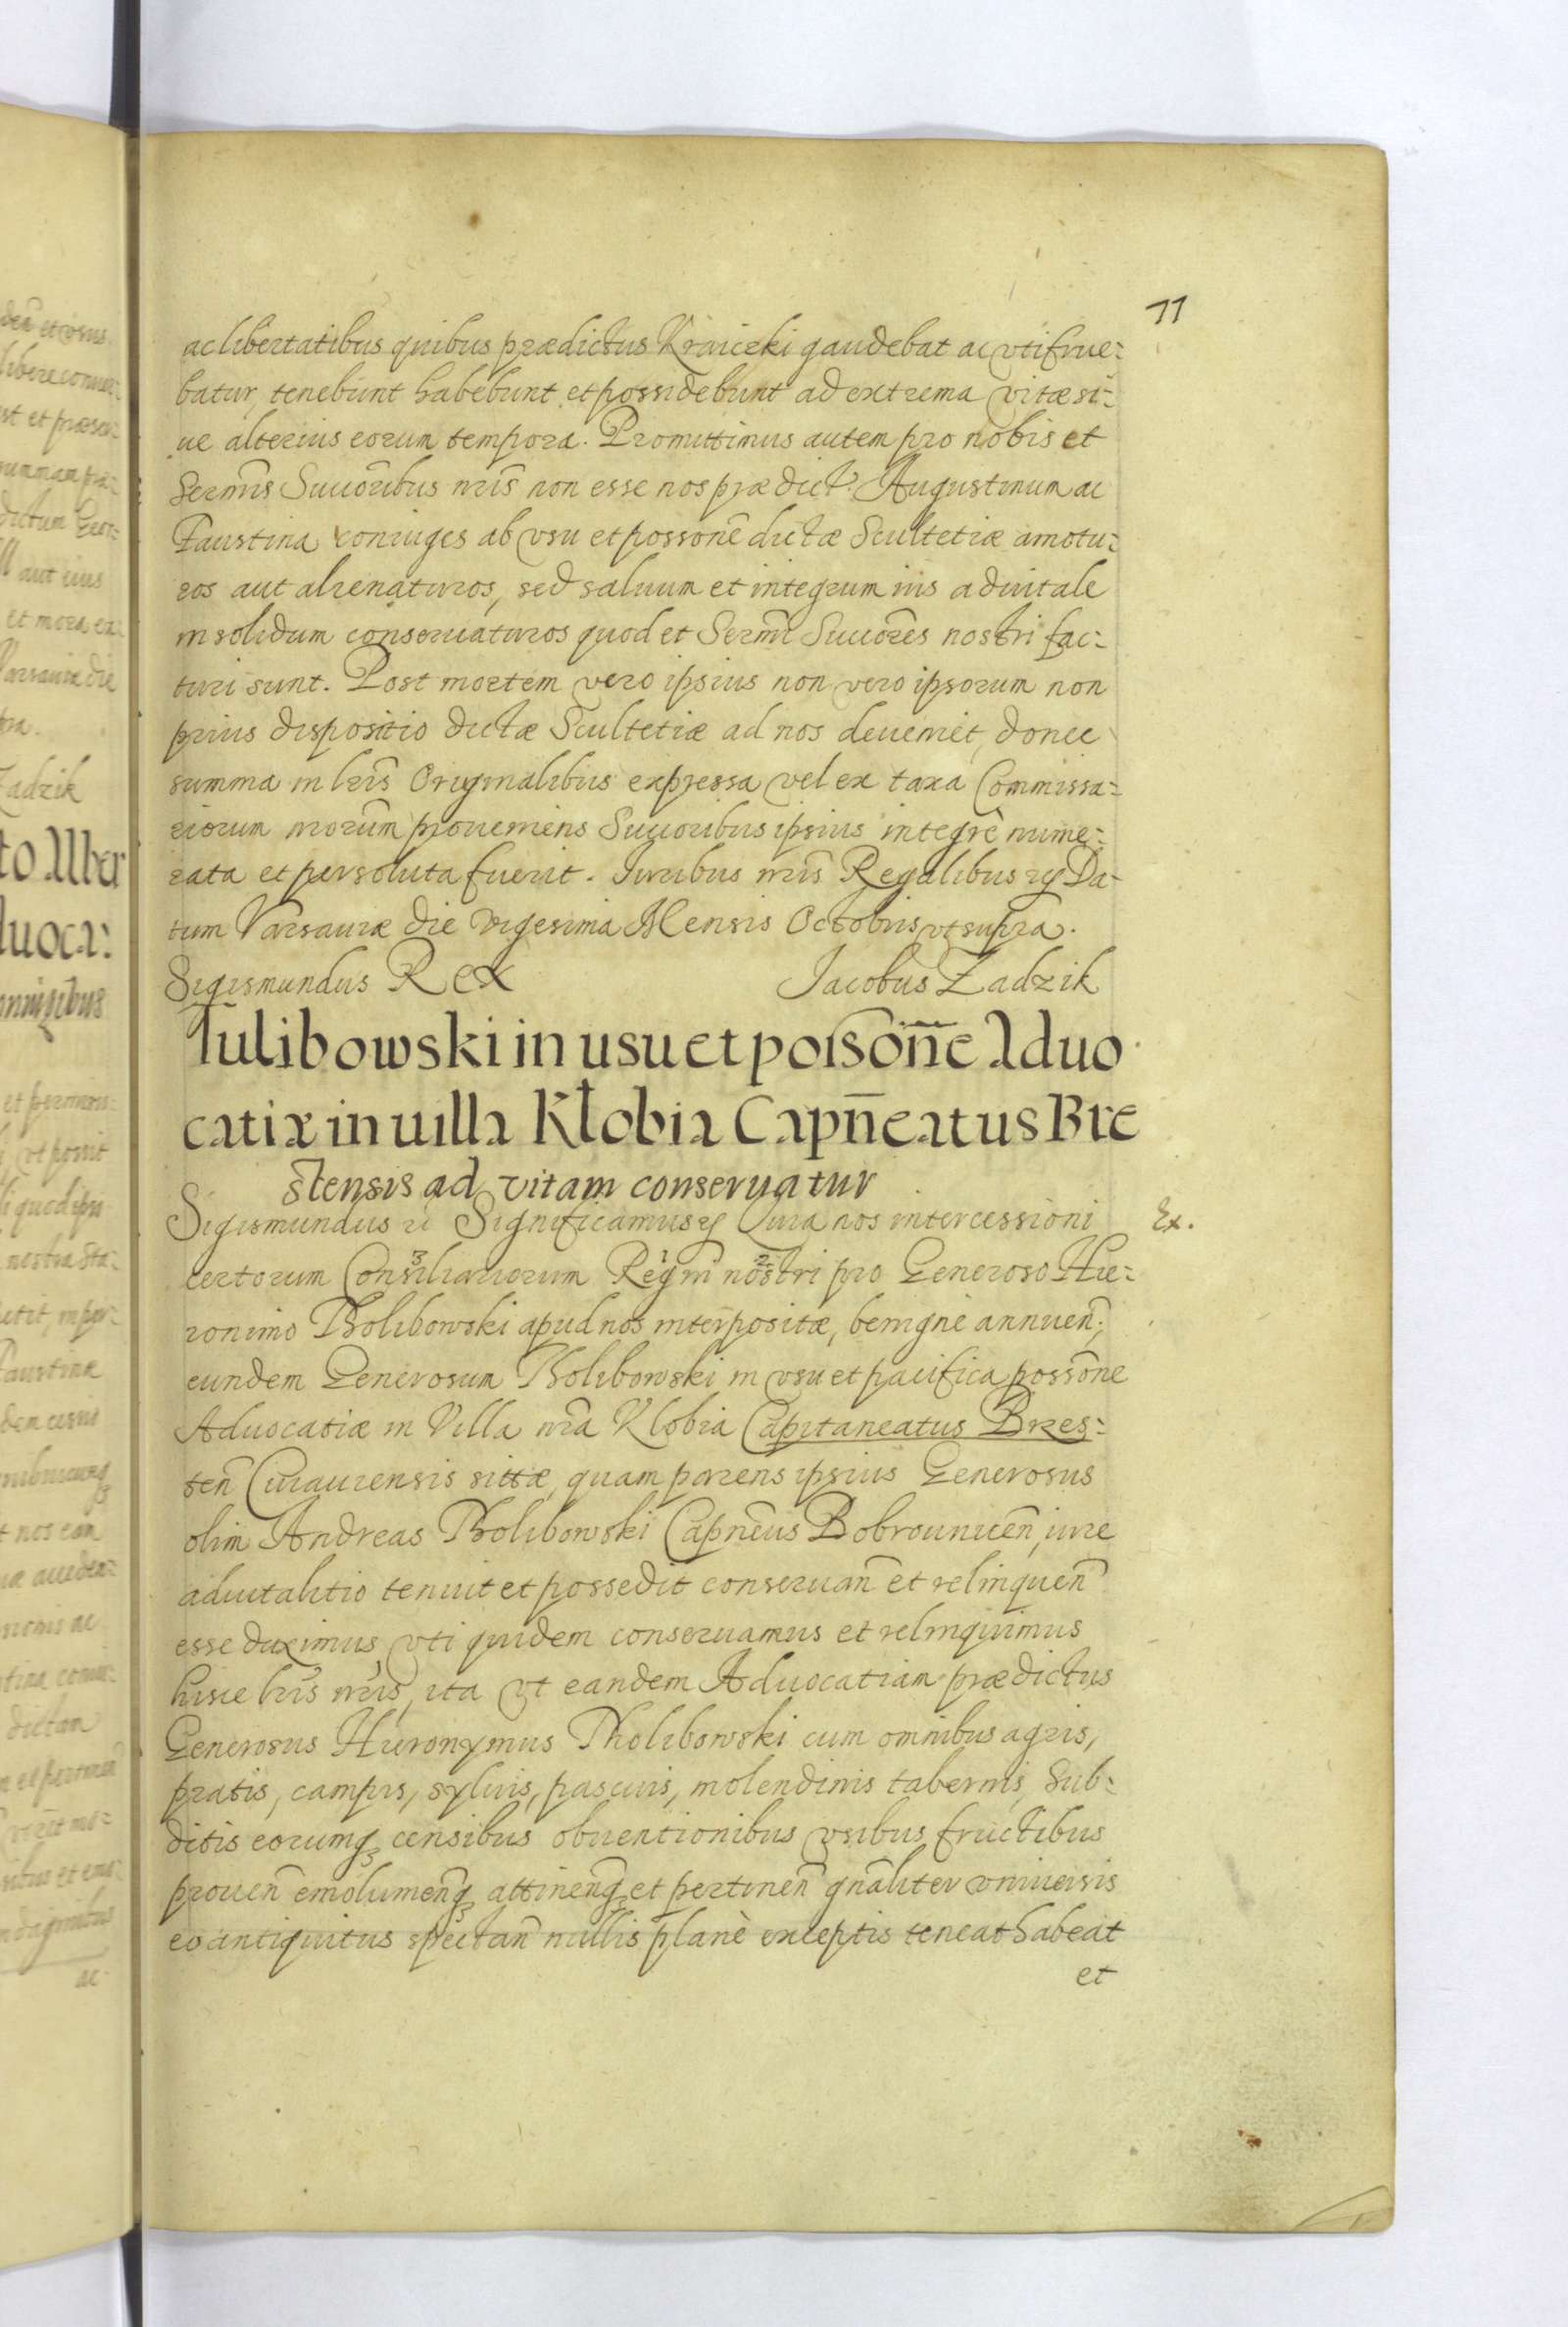 11
ac libertatibus quibus prædictus Kraiczki gaudebat ac vtifrue-
batur, tenebunt habebunt et possidebunt ad extrema vitæ si-
ue alterius eorum tempora. Promittimus autem pro nobis et
Sermis Succoribus nris non esse nos prædict. Augustinum ac
Faustina coniuges ab vsu et possone dictæ Scultetiæ amotu-
ros aut alienaturos, sed saluum et integrum ius aduitale
in solidum conseruaturos quod et Sermi Succores nostri fac-
turi sunt. Post mortem vero ipsius non vero ipsorum non
prius dispositio dictæ Scultetiæ ad nos deueniet, donec
summa in lris Originalibus expressa vel ex taxa Commissa-
riorum nrorum proueniens Succoribus ipsius integrè nume-
rata et persoluta fuerit. Iuribus nris Regalibus Da-
tum Varsauiæ die vigesima Mensis Octobris vt supra.
Sigismundus Rex Iacobus Zadzik
Tulibowski in usu et possone Aduo
catiæ in uilla Kłobia Capneatus Bre
stensis ad vitam conseruatur
Sigismundus Significamus Quia nos intercessioni
Ex.
certorum Consiliariorum Regni nostri pro Generoso Hie-
ronimo Tholibowski apud nos interpositæ, benignè annuen,
eundem Generosum Tholibowski in vsu et pacifica possone
Aduocatiæ in Villa nra Klobia Capitaneatus Brzes-
ten Cuiauiensis sittæ, quam parens ipsius Generosus
olim Andreas Tholibowski Capneus Bobrounicen, iure
aduitalitio tenuit et possedit conseruan et relinquen
esse duximus, vti quidem conseruamus et relinquimus
hisce lris nris, ita vt eandem Aduocatiam prædictus
Generosus Hieronymus Tholibowski cum omnibus agris,
pratis, campis, syluis, pascuis, molendinis tabernis, Sub-
ditis eorumq censibus obuentionibus vsibus fructibus
prouen emolumenq attinenq et pertinen gnaliter vniuersis
eo antiquitus spectan nullis planè exceptis teneat habeat
et